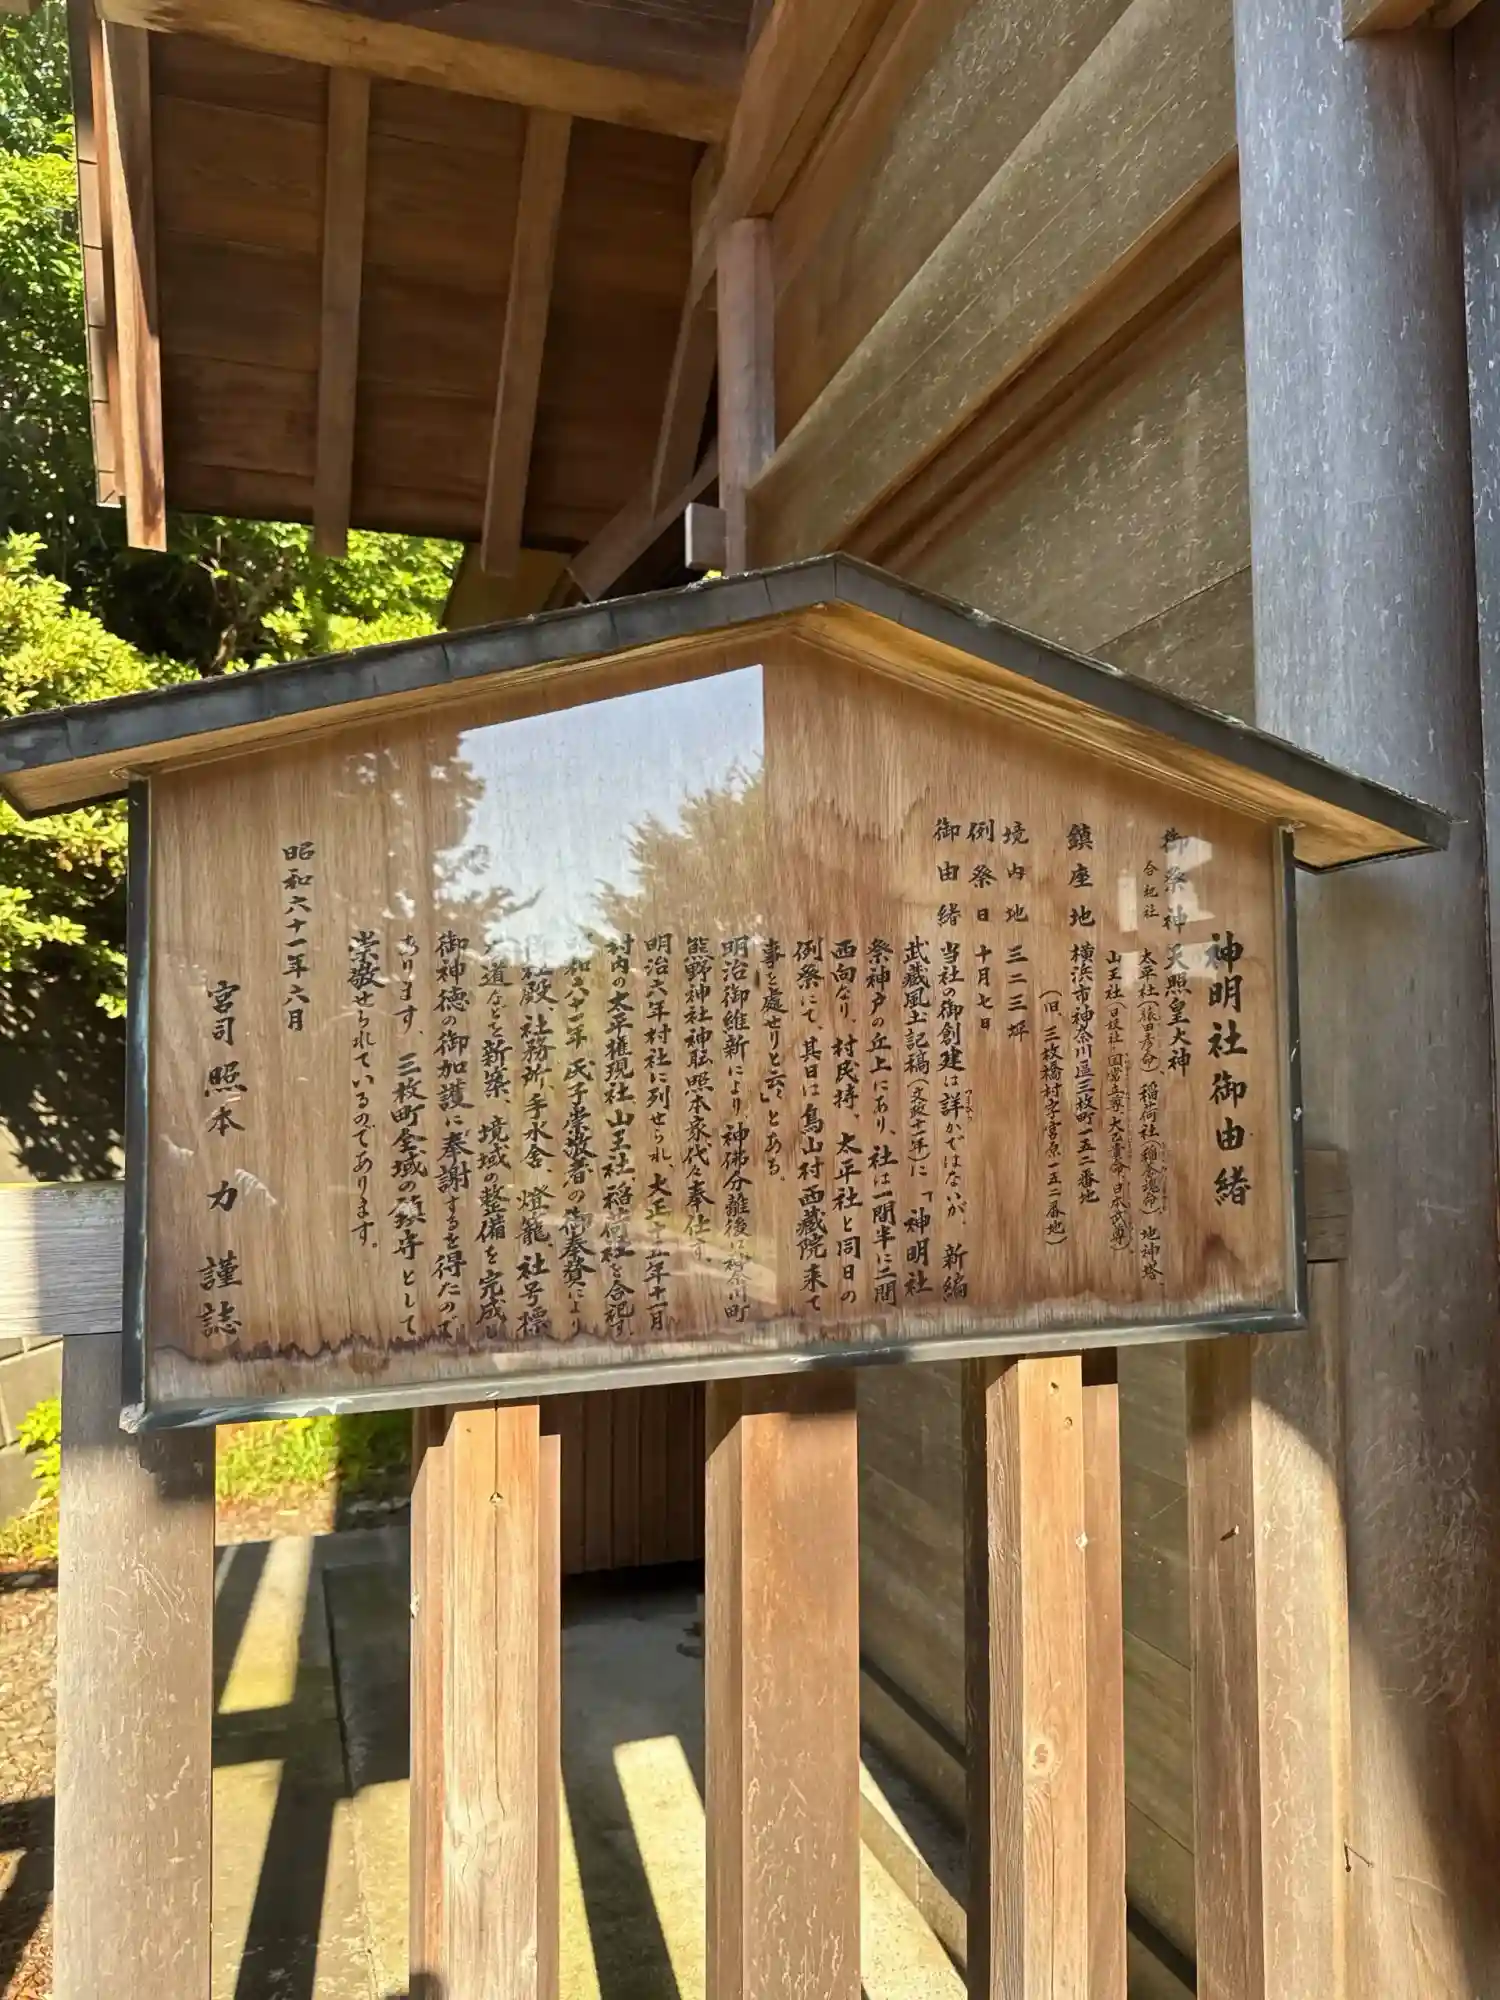 神明社御由緒
御祭神 天照皇大神
合祀社 太平社(猿田彦命) 稲荷社(稲倉魂命) 地神塔
山王社(日枝社・国常立尊、大己貴命、日本武尊)
鎮座地 横浜市神奈川區三枚町一五二番地
(旧、三枚橋村字宮原一五二番地)
境内地 三二三坪
例祭日 十月七日
御由緒 当社の御創建は詳かではないが、新編
武蔵風土記稿(文政十一年)に「神明社
祭神戸の丘上にあり、社は一間半に二間
西向なり、村民持、太平社と同日の
例祭にて、其日は鳥山村西蔵院来て
事を處せりと云」とある。
明治御維新により、神佛分離後は神奈川町
熊野神社神職照本家代々奉仕す。
明治六年村社に列せられ、大正十五年十一月
村内の太平権現社、山王社、稲荷社を合祀す。
昭和六十一年 氏子崇敬者の御奉賛により
御社殿、社務所、手水舎、燈籠、社号標
道などを新築、境域の整備を完成し
御神徳の御加護に奉謝するを得たので
あります。三枚町全域の鎮守として
崇敬せられているのであります。
昭和六十一年六月
宮司 照本 力 謹誌